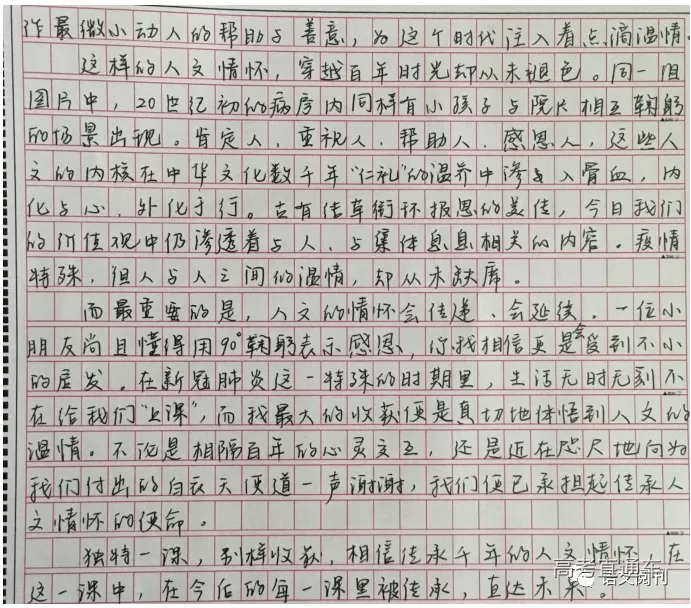 作最微小动人的帮助与善意，为这个时代注入着点滴温情。
这样的人文情怀，穿越百年时光却从未褪色。同一组
图片中，20世纪初的病房内同样有小孩子与院长相互鞠躬
的场景出现。肯定人、重视人、帮助人、感恩人，这些人
文的内核在中华文化数千年“仁礼”的温养中渗入骨血，内
化与心、外化于行。古有结草衔环报恩的美传，今日我们
的价值观中仍渗透着与人、与集体息息相关的内容。疫情
特殊，但人与人之间的温情，却从未缺席。
而最重要的是，人文的情怀会传递、会延续。一位小
朋友尚且懂得用90°鞠躬表示感恩，你我相信更是会受到不小
的启发。在新冠肺炎这一特殊的时期里，生活无时无刻不
在给我们“上课”，而我最大的收获便是真切地体悟到人文的
温情。不论是相隔百年的心灵交互，还是近在咫尺地向为
我们付出的白衣天使道一声谢谢，我们便已承担起传承人
文情怀的使命。
独特一课，别样收获，相信传承千年的人文情怀，在
这一课中，在今后的每一课里被传承，直达未来。
高考直通车
语文月刊